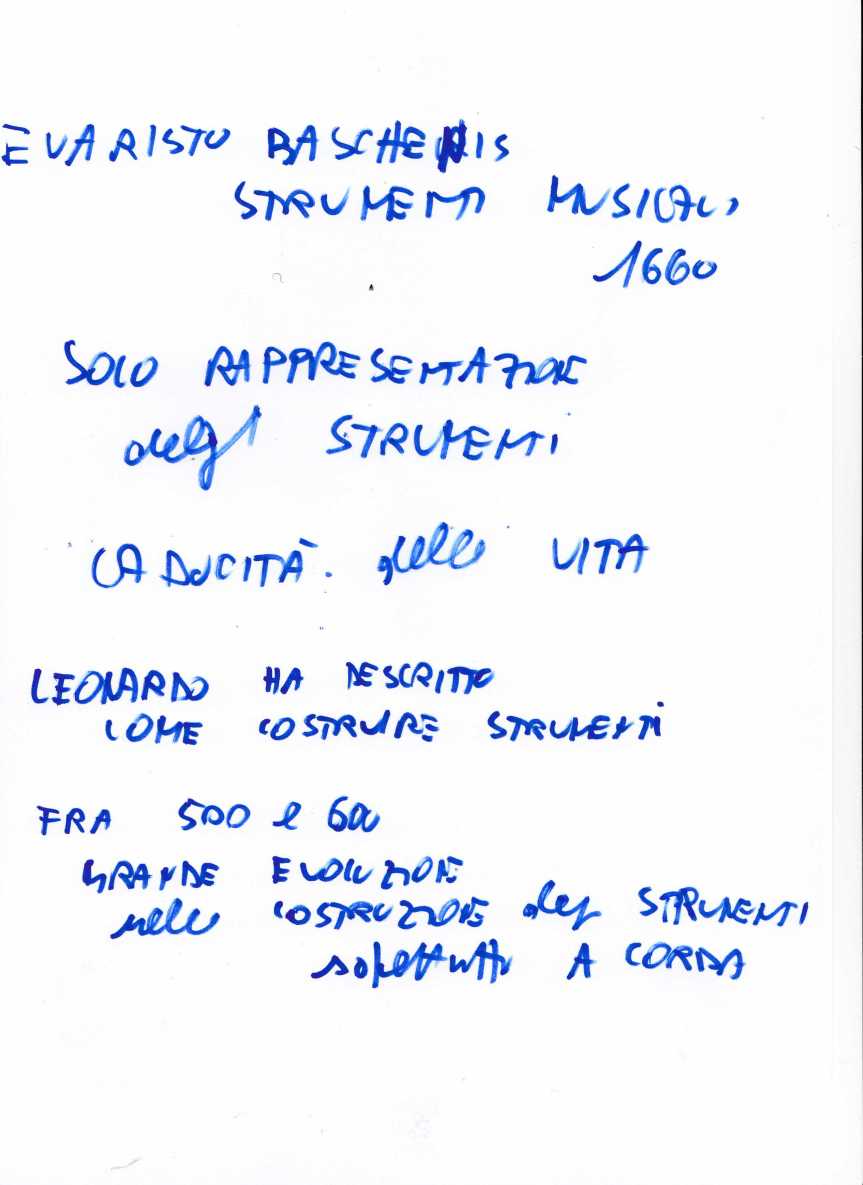 EVARISTO BASCHENIS
STRUMENTI MUSICALI
1660
SOLO RAPPRESENTAZIONE
degli STRUMENTI
CADUCITÀ della VITA
LEONARDO HA DESCRITTO
COME COSTRUIRE STRUMENTI
FRA 500 e 600
GRANDE EVOLUZIONE
nella COSTRUZIONE degli STRUMENTI
soprattutto A CORDA